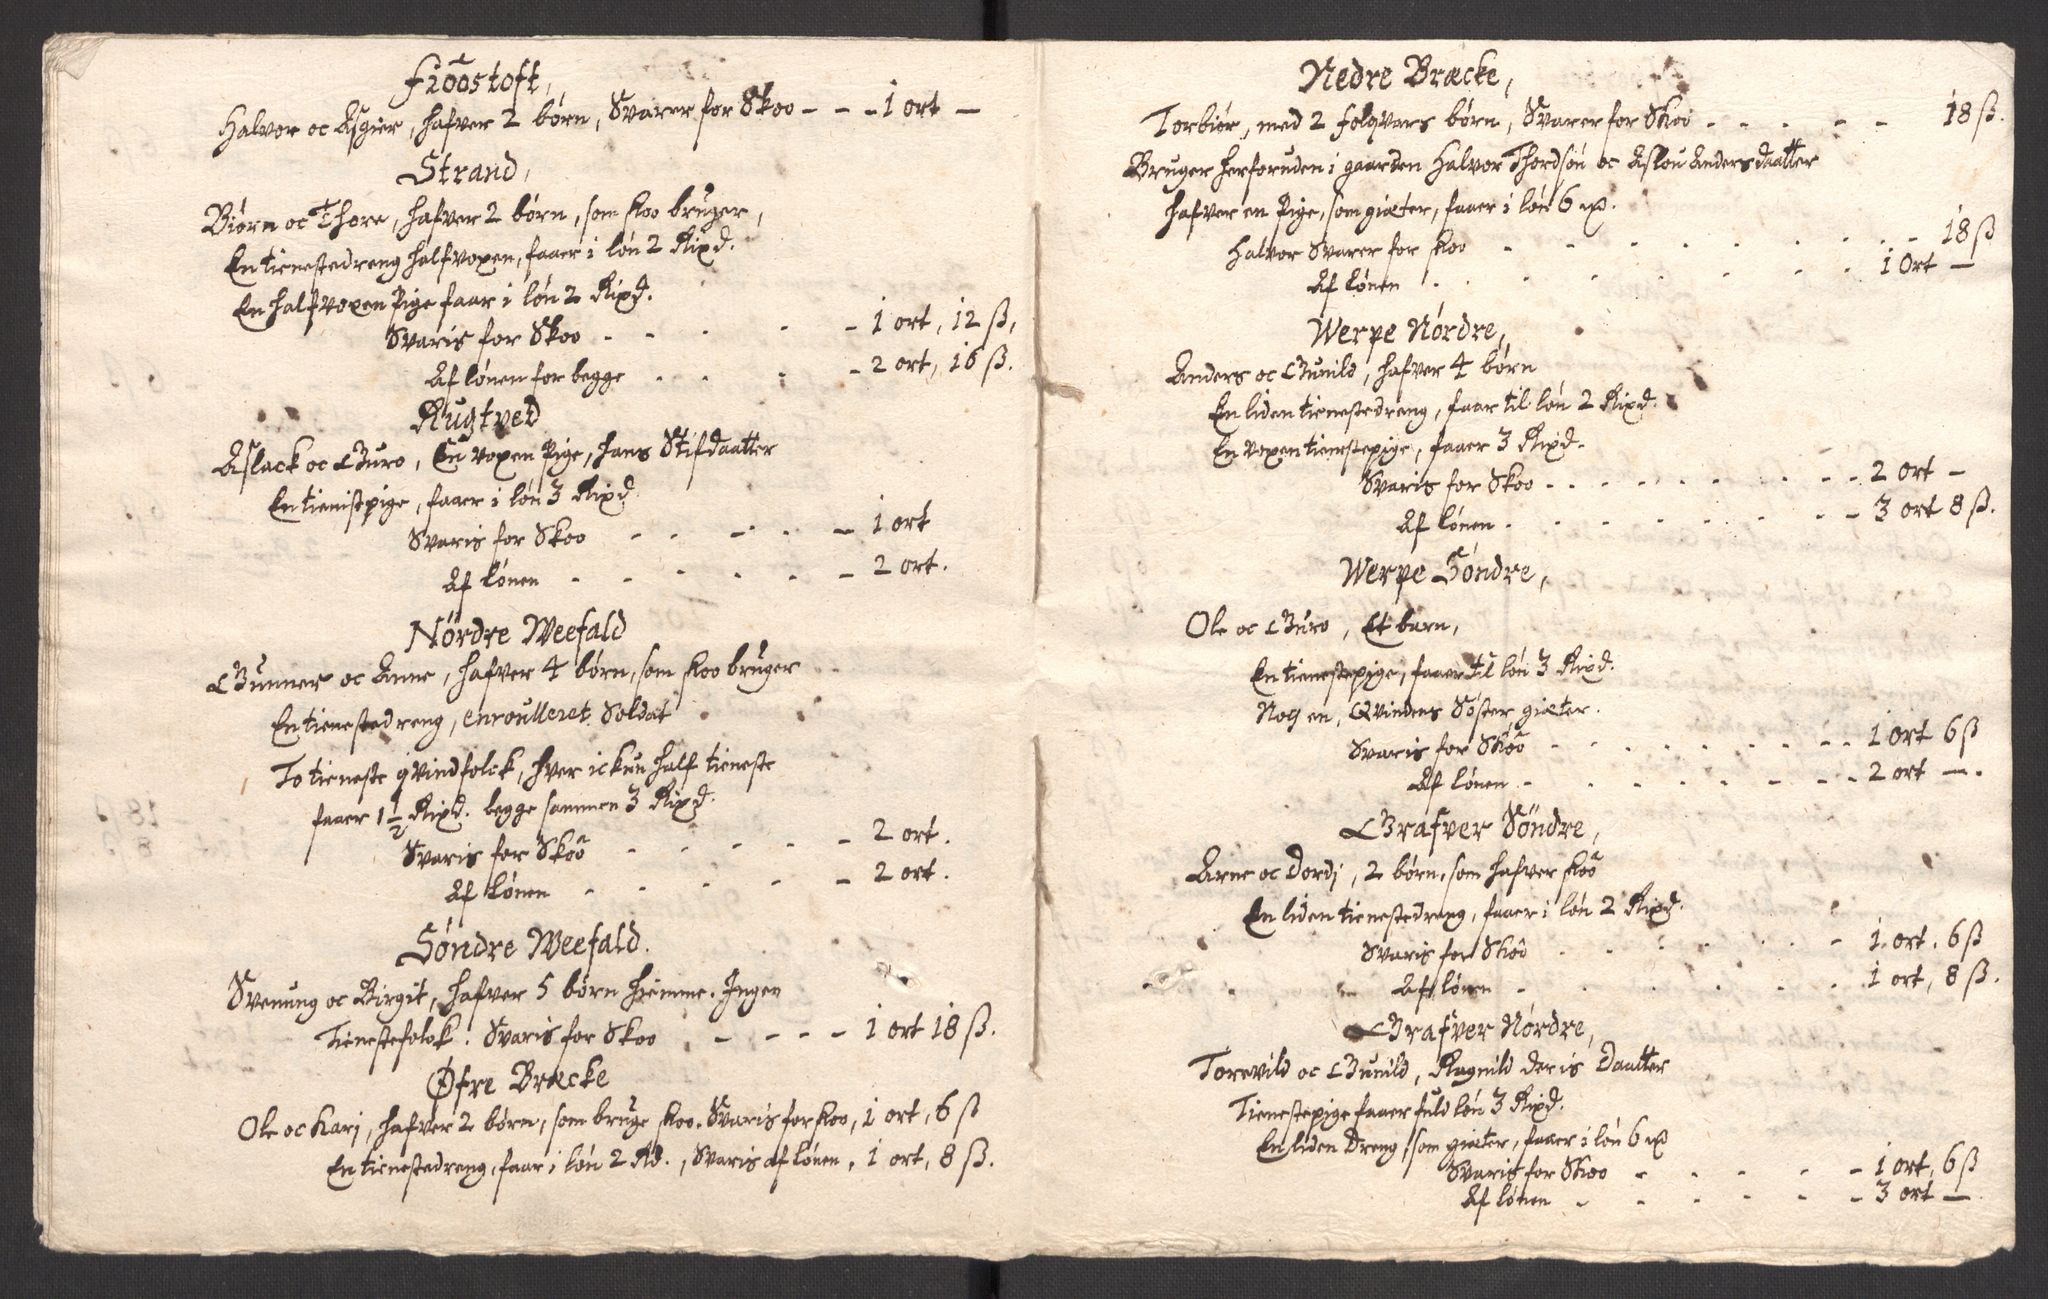 Fiöostoft,
Halvor oc Asgier, hafver 2 børn, Svarer for Skoo - - - 1 ort -
Strand,
Biørn oc Thore, hafver 2 børn, som skoo bruger,
En tienestedreng halfvoxen, faaer i løn 2 Rixd.
En halfvoxen Pige faar i løn 2 Rixd.
Svaris for Skoo - - - - - 1 ort, 12 ß,
Af lønen for begge - - - - - 2 ort, 16 ß.
Rugtved
Aslack oc Guro, En voxen Pige, hans Stifdaatter
En tienistpige, faaer i løn 3 Rixd.
Svaris for Skoo - - - - - 1 ort
Af lønen - - - - - - 2 ort.
Nørdre Weefald
Gunner oc Anne, hafver 4 børn, som skoo bruger
En tienestedreng, enroulleret Soldat
To tieneste qvindfolck, hver ickun half tieneste
faaer 1 1/2 Rixd. begge sammen 3 Rixd.
Svaris for Skoo - - - - - 2 ort.
Af Lønen - - - - - 2 ort.
Søndre Weefald.
Svenung oc Birgit, hafver 5 børn hiemme. Ingen
Tienestefolck. Svaris for Skoo - - - - 1 ort 18 ß.
Øfre Bræcke
Ole oc Karj, hafver 2 børn, som bruge skoo. Svaris for skoo, 1 ort, 6 ß
En tienestedreng, faar i løn 2 Rd., Svaris af lønen, 1 ort, 8 ß.
Nedre Bræcke,
Torbiør, med 2 børn, Svarer for Skoo - - - - - 18 ß.
Bruger herforuden i gaarden Halvor Thordsøn oc Aslou Andersdaatter
hafver en Pige, som giæter, faaer i løn 6
Halvor Svarer for skoo - - - - - - - - 18 ß
Af lønen - - - - - - - - 1 Ort -
Werpe Nørdre,
Anders oc Gunild, hafver 4 børn
En liden tienestedreng, faar til løn 2 Rixd.
En voxen tienestepige, faaer 3 Rixd.
Svaris for Skoo - - - - - - - - 2 ort -
Af lønen - - - - - - - - 3 ort 8 ß.
Werpe Søndre,
Ole oc Guro, Et barn,
En tienestepige, faaer til løn 3 Rixd.
Noch en, Qvindens Søster, giæter.
Svaris for Skoo - - - - - - - - 1 ort 6 ß
Af lønen - - - - - - - 2 ort -.
Grafver Søndre,
Arne oc Dordj, 2 børn, som hafver skoo
En liden tienestedreng, faaer i løn 2 Rixd.
Svaris for Skoo - - - - - - 1. ort. 6 ß
Af lønen - - - - - - 1 ort, 8 ß.
Grafver Nørdre,
Torevild oc Gunild, Ragnild deris Daatter
Tienestepige faaer fuld løn 3 Rixd.
En liden Dreng, som giæter, faaer i løn 6
Svaris for Skoo - - - - - 1 ort, 6 ß
Af lønen - - - - - - 3 ort -